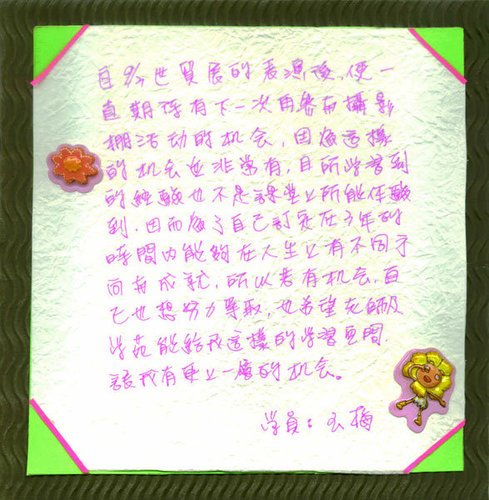 自9/2世貿展的表演後，便一
直期待有下一次再參与攝影
棚活动的机会，因為這樣
的机会並非常有，且所學習到
的經驗也不是課堂上所能体驗
到，因而為了自己訂定在3年的
時間內能夠在人生上有不同方
向与成就，所以若有机会，自
己也想努力爭取，也希望老師及
學苑能給我這樣的學習空間，
讓我有更上一層的机会。
學員：玉梅